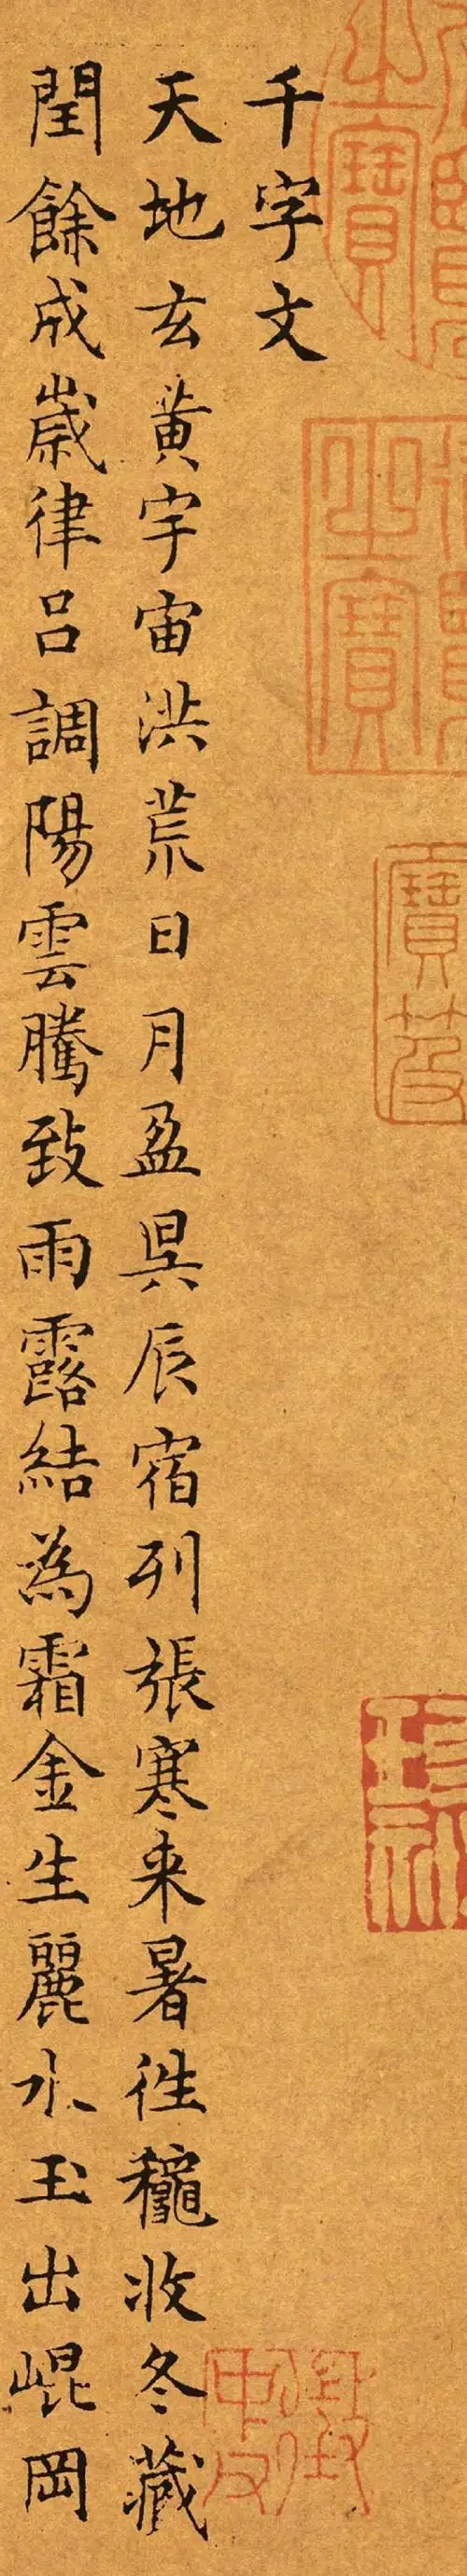 之寶
之寶
寶笈
千字文
天地玄黄宇宙洪荒日月盈昗辰宿列張寒来暑徃穐收冬藏
閏餘成歲律吕調陽雲騰致雨露結為霜金生麗水玉出崐岡